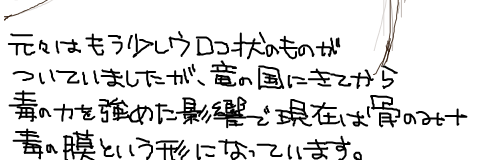 元々はもう少しウロコ状のものが
ついていましたが、竜の国にきてから
毒の力を強めた影響で現在は骨のみ+
毒の膜という形になっています。